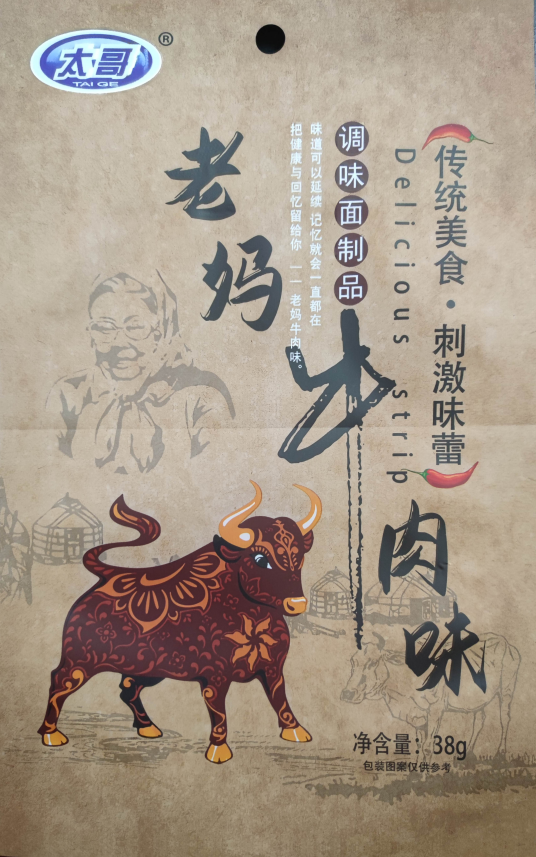 太哥®
TAI GE
老妈牛肉味
调味面制品
味道可以延续 记忆就会一直都在
把健康与回忆留给你 ——老妈牛肉味。
传统美食·刺激味蕾
Delicious strip
净含量：38g
包装图案仅供参考